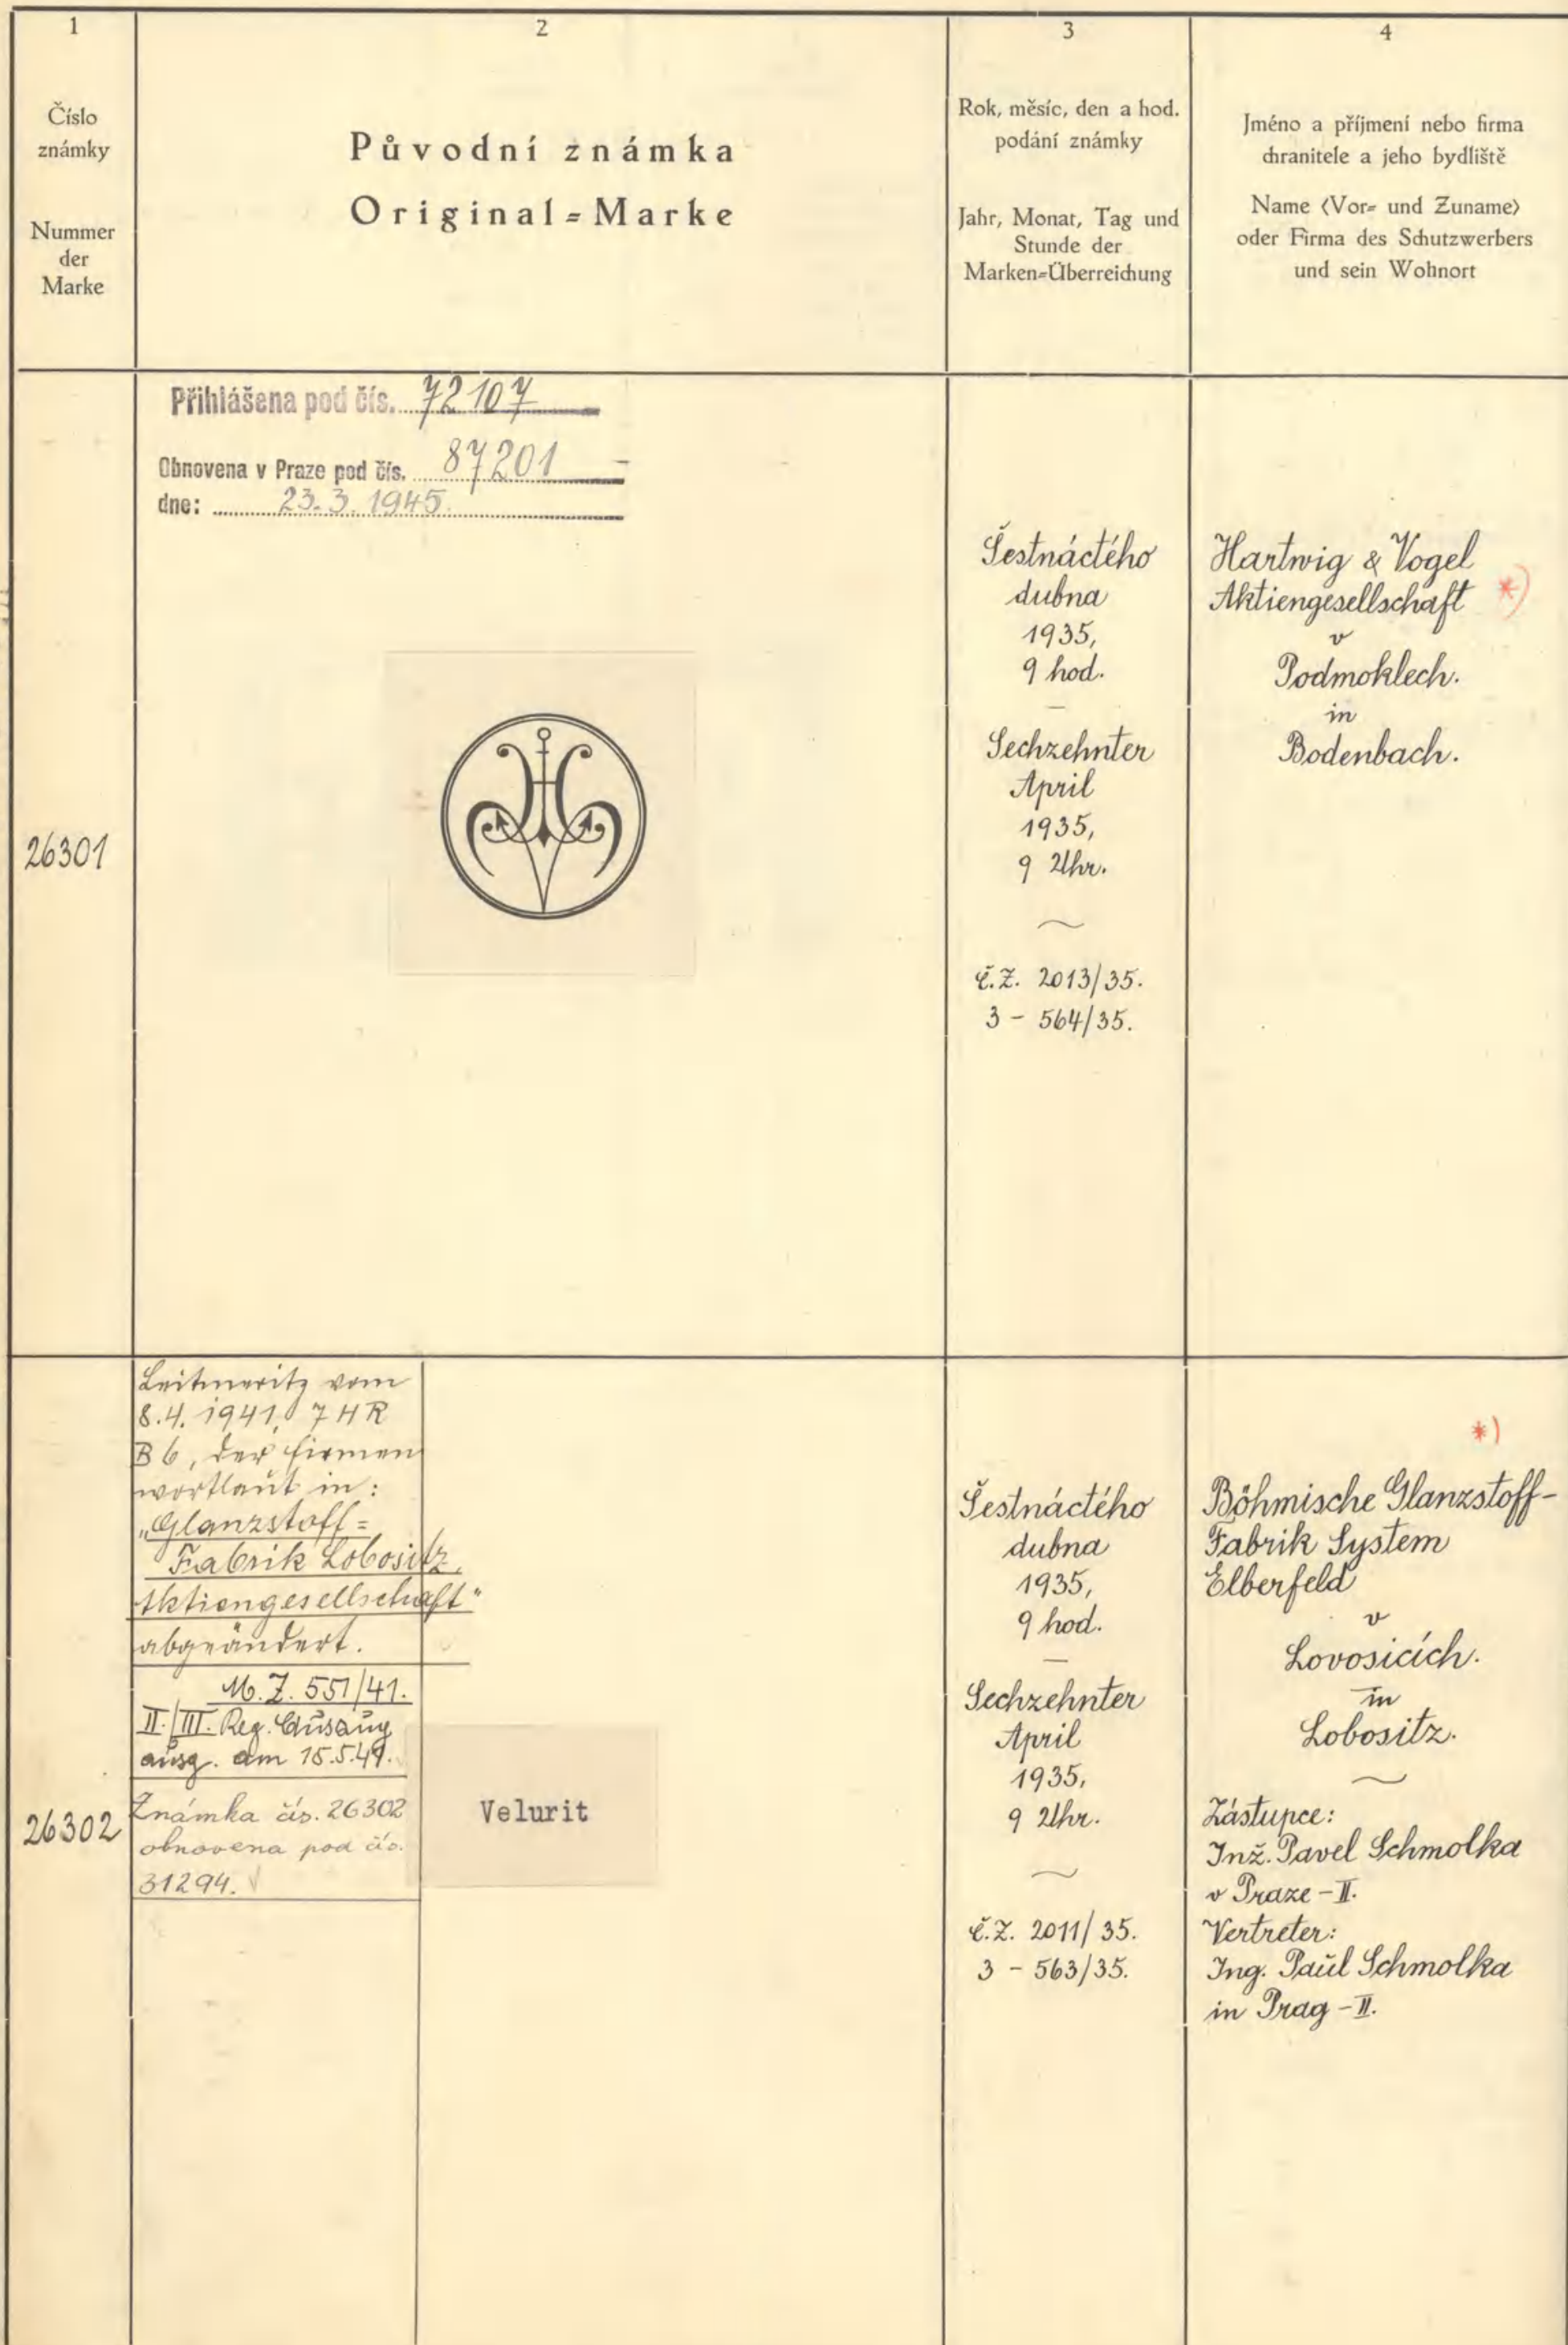 1
Číslo
známky
Nummer
der
Marke
2
Původní známka
Original-Marke
3
Rok, měsíc, den a hod.
podání známky
Jahr, Monat, Tag und
Stunde der
Marken-Überreichung
4
Jméno a příjmení nebo firma
chranitele a jeho bydliště
Name (Vor- und Zuname)
oder Firma des Schutzwerbers
und sein Wohnort
26301
Přihlášena pod čís. 72107
Obnovena v Praze pod čís. 87201
dne: 23.3.1945.
Šestnáctého
dubna
1935,
9 hod.
Sechzehnter
April
1935,
9 Uhr.
Č.Z. 2013/35.
3 - 564/35.
Hartwig & Vogel
Aktiengesellschaft *)
v
Podmoklech.
in
Bodenbach.
26302
Leitmeritz vom
8.4.1941, 7 HR
B 6, der Firmen
wortlaut in:
„Glanzstoff=
Fabrik Lobositz
Aktiengesellschaft"
abgeändert.
M.Z. 551/41.
II./III. Reg.
ausg. am 15.5.41.
Známka čís. 26302
obnovena pod čís.
31294.
Velurit
Šestnáctého
dubna
1935,
9 hod.
Sechzehnter
April
1935,
9 Uhr.
Č.Z. 2011/35.
3 - 563/35.
*)
Böhmische Glanzstoff-
Fabrik System
Elberfeld
v
Lovosicích.
in
Lobositz.
Zástupce:
Inž. Pavel Schmolka
v Praze-II.
Vertreter:
Ing. Paul Schmolka
in Prag-II.